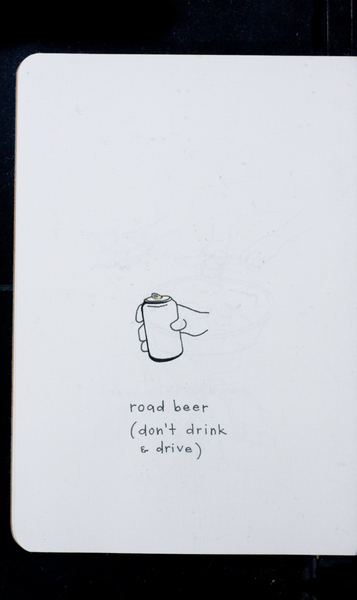 road beer
(don't drink
& drive)